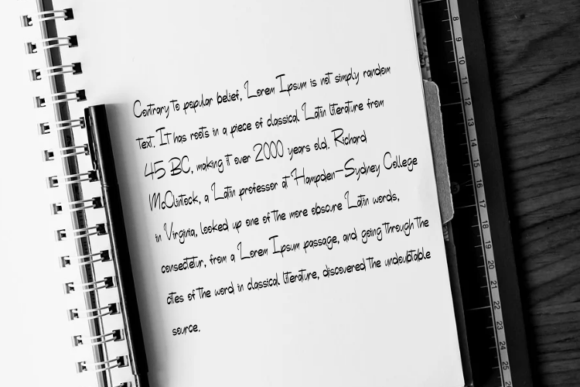 Contrary to popular belief, Lorem Ipsum is not simply random
text. It has roots in a piece of classical Latin literature from
45 BC, making it over 2000 years old. Richard
McClintock, a Latin professor at Hampden-Sydney College
in Virginia, looked up one of the more obscure Latin words,
consectetur, from a Lorem Ipsum passage, and going through the
cites of the word in classical literature, discovered the undoubtable
source.
8
9
10
11
12
13
14
15
16
17
18
19
20
21
22
23
24
25